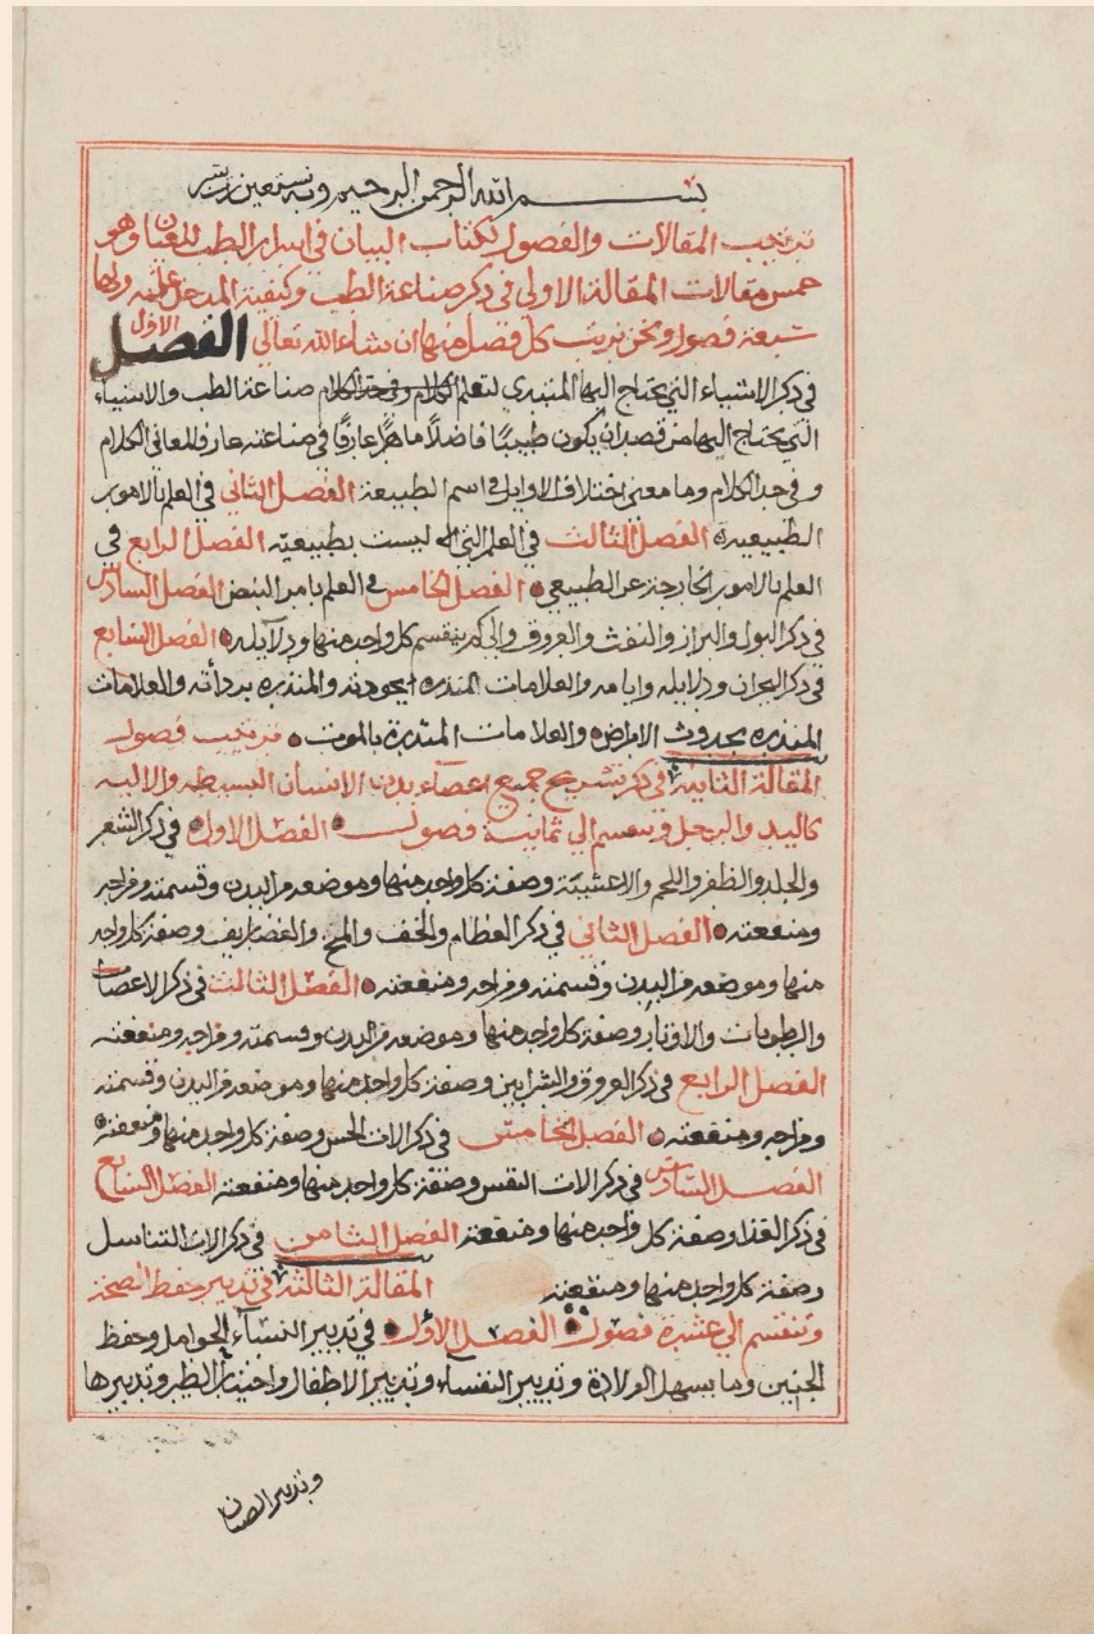 بسم الله الرحمن الرحيم وبه نستعين رب يسر
ترتيب المقالات والفصول لكتاب البيان في اسرار الطب للعيان وهو
خمس مقالات المقالة الاولى في ذكر صناعة الطب وكيفية المدخل الى علمه ولها
سبعة فصول ونحن نرتب كل فصل منها ان شاء الله تعالى الفصل الاول
في ذكر الاشياء التي يحتاج اليها المبتدي لتعلم صناعة الطب والاشياء
التي يحتاج اليها من قصد ان يكون طبيبًا فاضلاً ماهرًا عارفًا في صناعته عارف لمعاني الكلام
وفي حد الكلام وما معنى اختلاف الاوايل في اسم الطبيعة الفصل الثاني في العلم بالامور
الطبيعيه الفصل الثالث في العلم التي ليست بطبيعيّه الفصل الرابع في
العلم بالامور الخارجة عن الطبيعي الفصل الخامس في العلم بامر النبض الفصل السادس
في ذكر البول والبراز والنفث والعروق والى كم ينقسم كل واحد منها ودلآيله الفصل السابع
في ذكر البحران ودلايله وايامه والعلامات المنذره بجودته والمنذره بردأته والعلامات
المنذره بحدوث الامراض والعلامات المنذرة بالموت ترتيب فصول
المقالة الثانية في ذكر تشريح جميع اعضآء بدن الانسان البسيطه والاليه
كاليد والرجل وتنقسم الى ثمانية فصول الفصل الاول في ذكر الشعر
والجلد والظفر واللحم والاغشيّة وصفة كل واحد منها وموضعه من البدن وقسمته ومزاجه
ومنفعته الفصل الثاني في ذكر العظام والخف والمخ والغضاريف وصفة كل واحد
منها وموضعه من البدن وقسمته ومزاجه ومنفعته الفصل الثالث في ذكر الاعصاب
والرطوبات والاوتار وصفة كل واحد منها وموضعه من البدن وقسمته ومزاجه ومنفعته
الفصل الرابع في ذكر العروق والشرايين وصفة كل واحد منها وموضعه من البدن وقسمته
ومزاجه ومنفعته الفصل الخامس في ذكر الات الحس وصفة كل واحد منها ومنفعته
الفصل السادس في ذكر الات النفس وصفة كل واحد منها ومنفعته الفصل السابع
في ذكر الغذا وصفة كل واحد منها ومنفعته الفصل الثامن في ذكر الات التناسل
وصفة كل واحد منها ومنفعته المقالة الثالثة في تدبير حفظ الصحة
وتنقسم الى عشرة فصول الفصل الاول في تدبير النسآء الحوامل وحفظ
الجنين وما يسهل الولادة وتدبير النفساء وتدبير الاطفال واختيار الظير وتدبيرها
وتدبير الصبيان